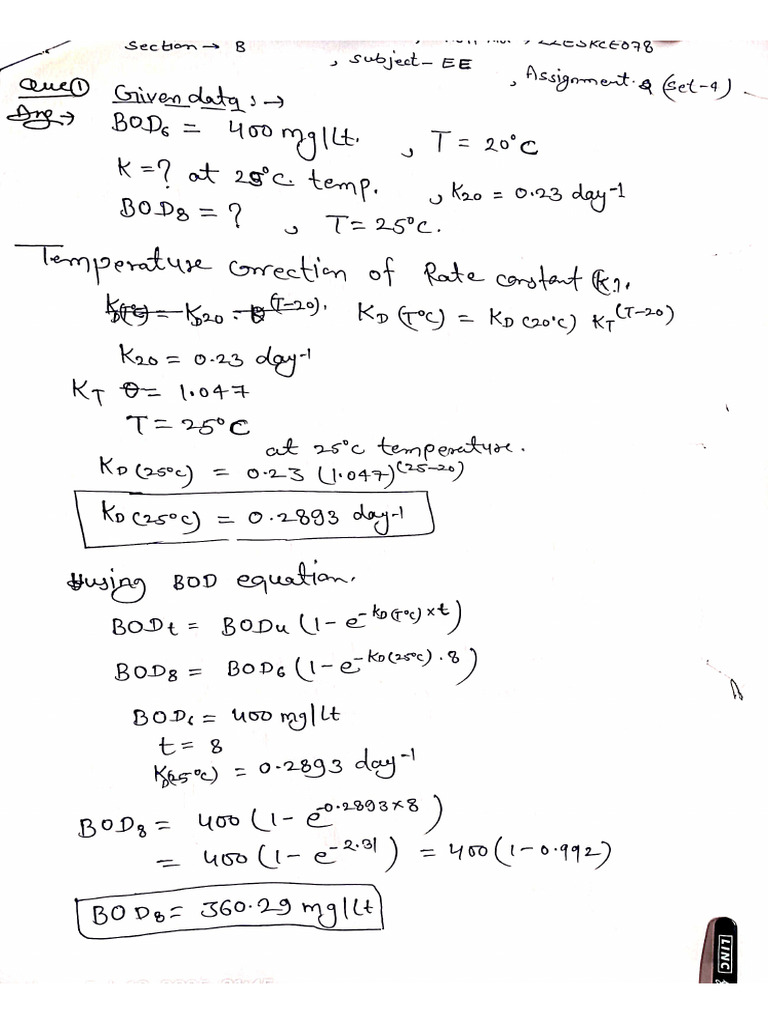 Section → B
, Subject - EE
, Assignment. (Set-4)
Que①
Ans → Given data : →
BOD₆ = 400 mg/Lt. , T = 20°C
K = ? at 25°C. temp. , K₂₀ = 0.23 day-1
BOD₈ = ? , T = 25°C.
Temperature correction of Rate constant (K).
K_D(T°C) = K_D20 · θ^(T-20). K_D (T°C) = K_D (20°C) K_T^(T-20)
K₂₀ = 0.23 day-1
K_T θ = 1.047
T = 25°C
at 25°C temperature.
K_D (25°C) = 0.23 (1.047)^(25-20)
K_D (25°C) = 0.2893 day-1
using BOD equation.
BODt = BODu (1 - e^-K_D(T°C) × t)
BOD₈ = BOD₆ (1 - e^-K_D(25°C) . 8)
BOD₆ = 400 mg/Lt
t = 8
K_D(25°C) = 0.2893 day-1
BOD₈ = 400 (1 - e^-0.2893×8)
= 400 (1 - e^-2.31) = 400 (1 - 0.992)
BOD₈ = 360.29 mg/Lt
LINC